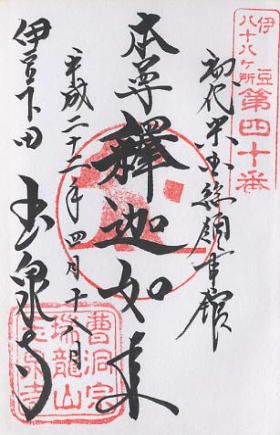 伊豆
八十八ヶ所
第四十番
初代米国総領事館
本尊 釋迦如来
平成二十二年四月十八日
伊豆下田 玉泉寺
曹洞宗
瑞龍山
玉泉寺